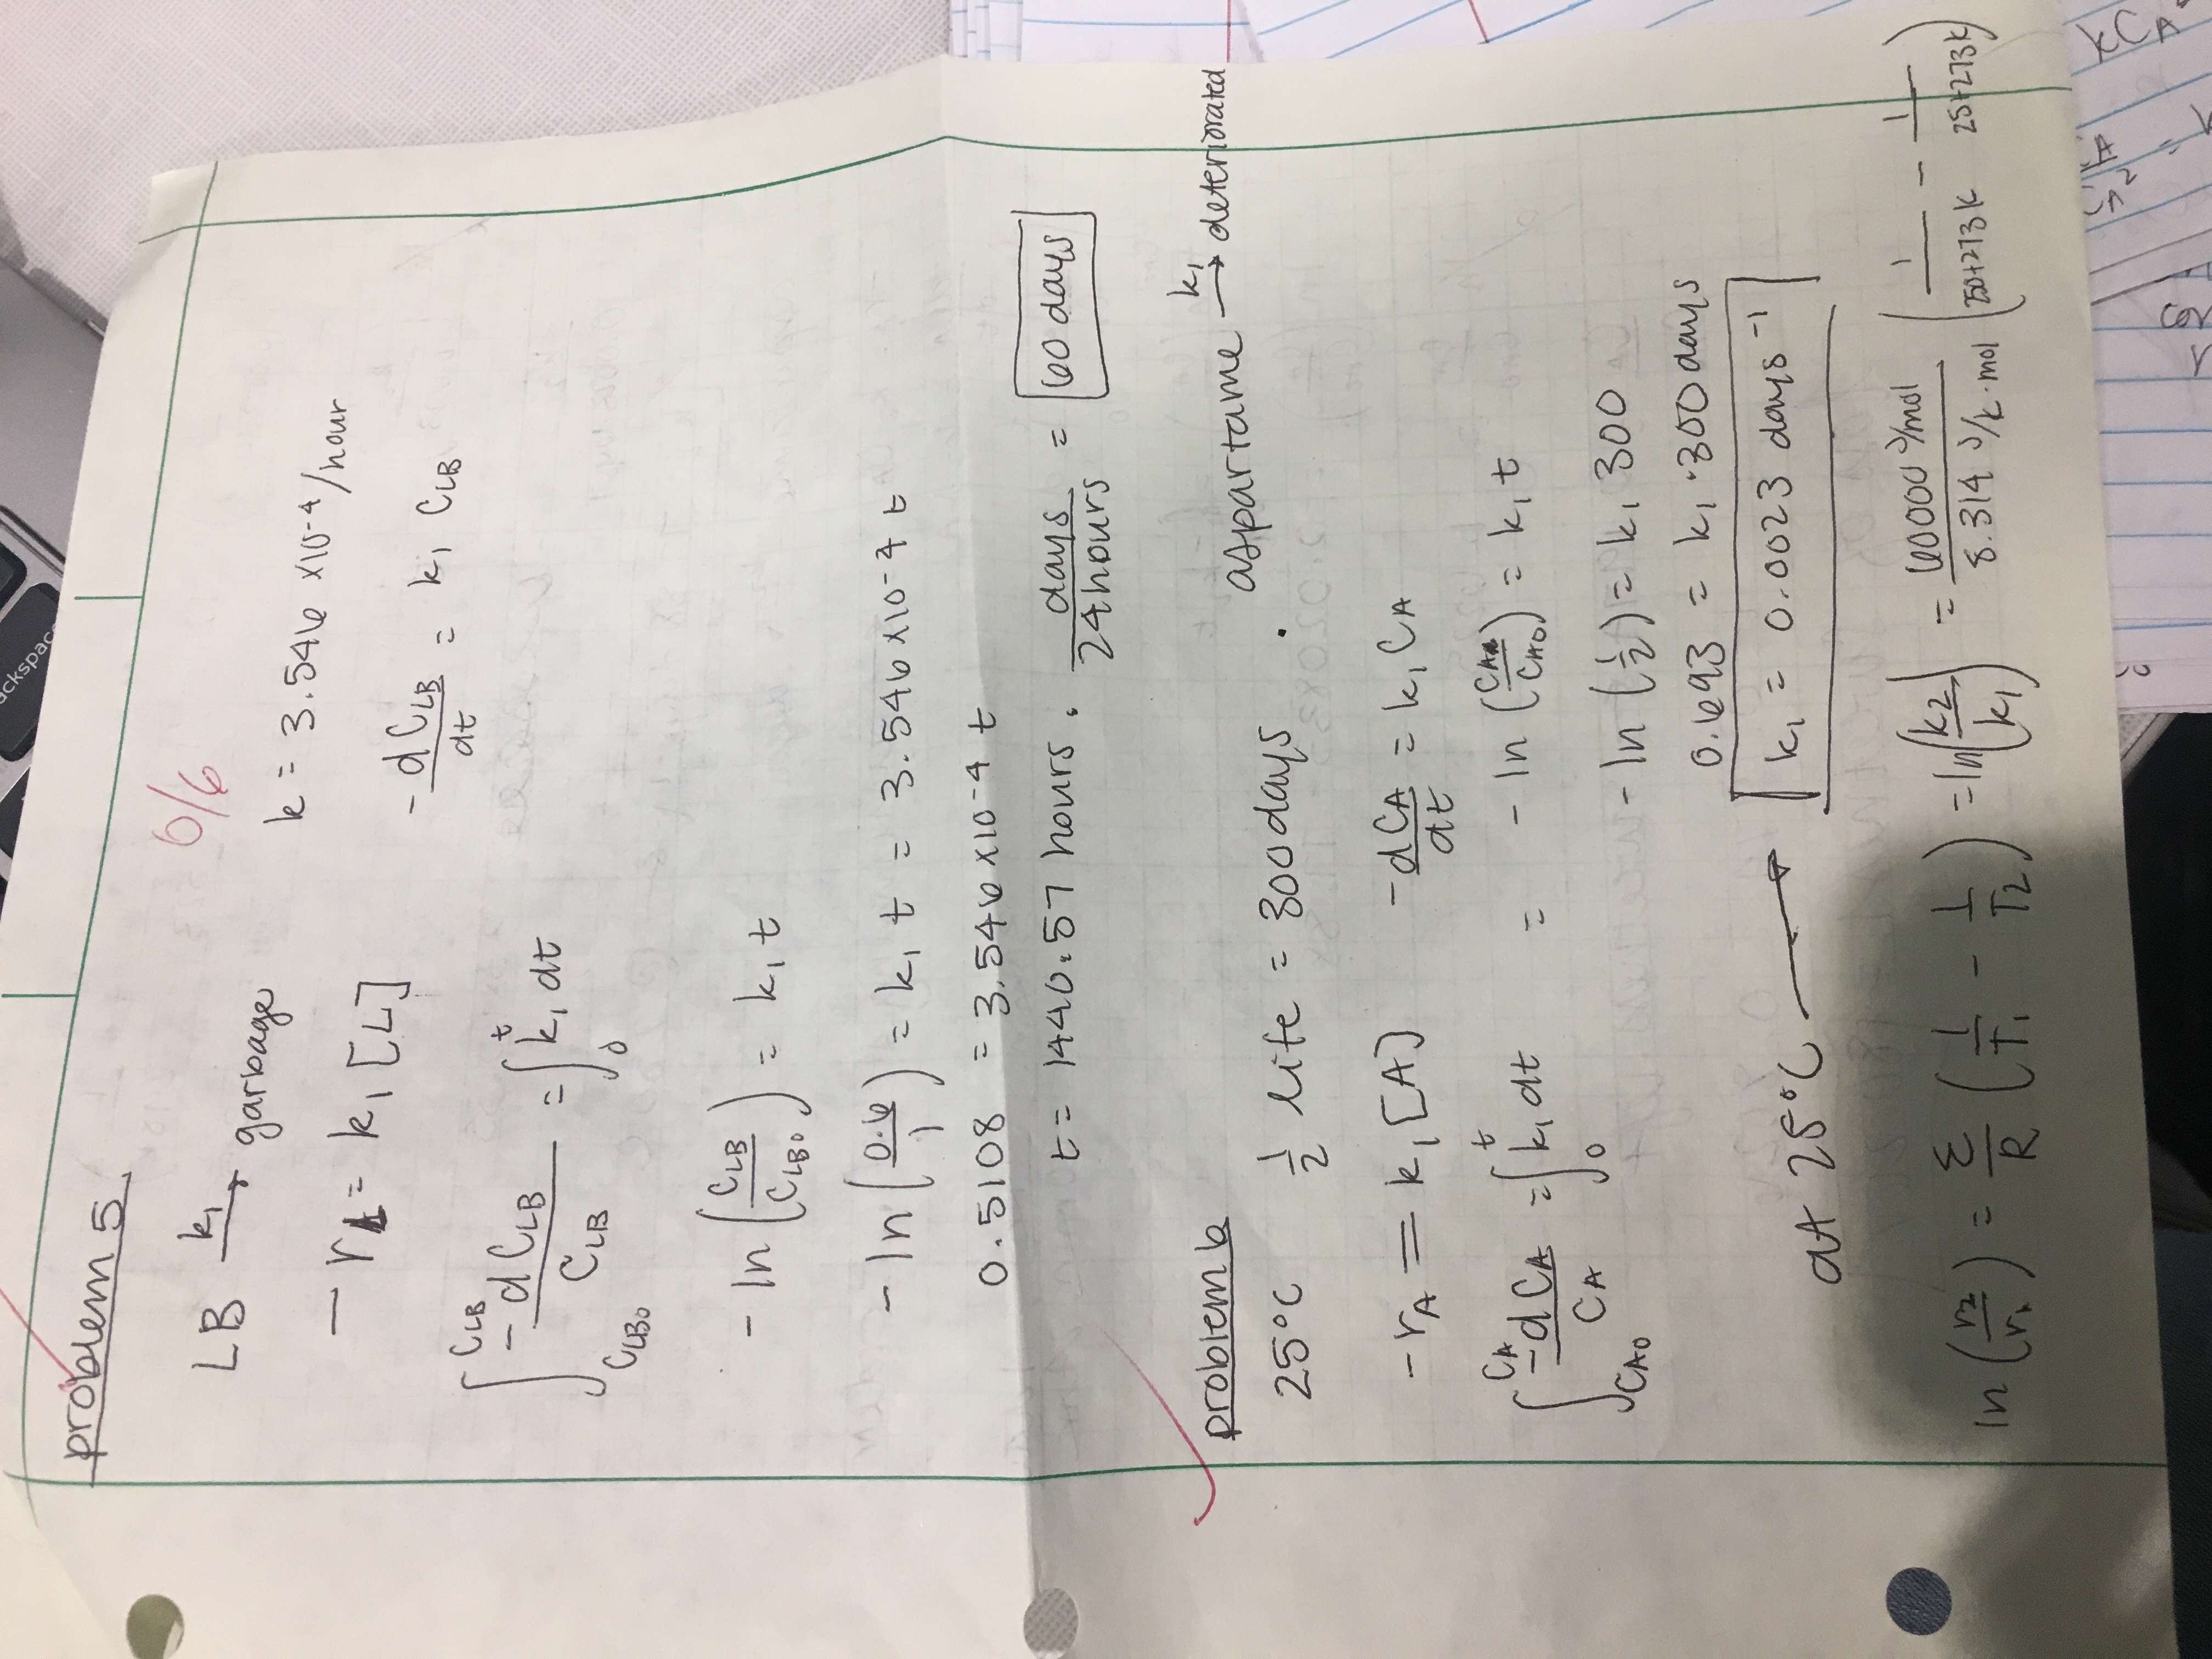 ackspace
problem 5
0/6
LB k₁→ garbage
k = 3.546 ×10⁻⁴/hour
- r_L = k₁ [L]
-dC_LB/dt = k₁ C_LB
∫_{C_LB₀}^{C_LB} -dC_LB/C_LB = ∫_0^t k₁ dt
- ln (C_LB/C_LB₀) = k₁ t
- ln (0.6/1) = k₁ t = 3.546 ×10⁻⁴ t
0.5108 = 3.546 ×10⁻⁴ t
t = 1440.57 hours · days/24 hours = 60 days
problem 6
aspartame k₁→ deteriorated
25°C ½ life = 300 days .
-r_A = k₁ [A] -dC_A/dt = k₁ C_A
∫_{C_A0}^{C_A} -dC_A/C_A = ∫_0^t k₁ dt = - ln (C_A/C_A0) = k₁ t
- ln (½) = k₁ 300
0.693 = k₁ · 300 days
at 25°C → k₁ = 0.0023 days⁻¹
ln (r₂/r₁) = Σ/R (1/T₁ - 1/T₂) = ln (k₂/k₁) = 60000 J/mol / 8.314 J/K·mol (1/250+273K - 1/25+273K)